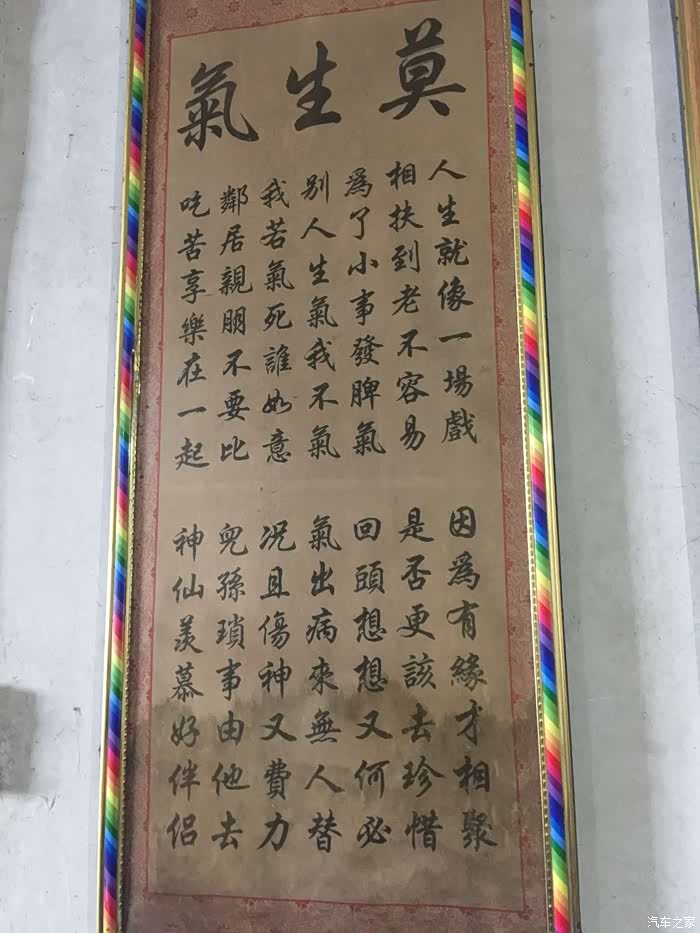 莫生氣
人生就像一場戲
因爲有緣才相聚
相扶到老不容易
是否更該去珍惜
爲了小事發脾氣
回頭想想又何必
别人生氣我不氣
氣出病來無人替
我若氣死誰如意
况且傷神又費力
鄰居親朋不要比
兒孫瑣事由他去
吃苦享樂在一起
神仙羨慕好伴侣
汽车之家